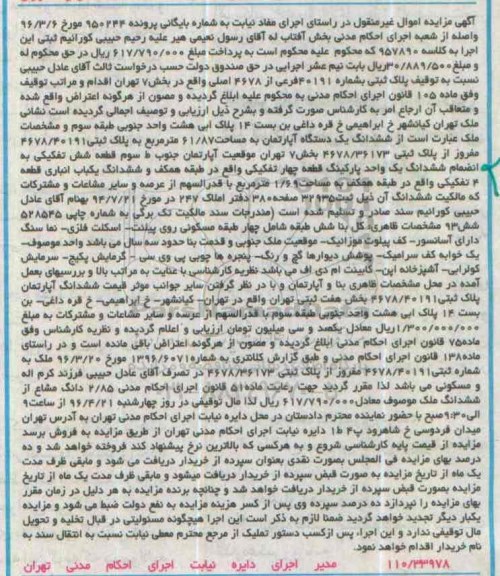 آگهی مزایده اموال غیرمنقول در راستای اجرای مفاد نیابت به شماره بایگانی پرونده ۹۵۰۲۴۴ مورخ ۹۶/۳/۶
واصله از شعبه اجرای احکام مدنی بخش آفتاب له آقای رسول نعیمی هیر علیه رحیم حبیبی کورائیم ثبتی این
اجرا به کلاسه ۹۵۷۸۹۰ که محکوم علیه محکوم است به پرداخت مبلغ ۶۱۷/۷۹۰/۰۰۰ ریال در حق محکوم له
و مبلغ ۳۰/۸۸۹/۵۰۰ریال بابت نیم عشر اجرایی در حق صندوق دولت حسب درخواست ثالث آقای عادل حبیبی
نسبت به توقیف پلاک ثبتی بشماره ۴۰۱۹۱فرعی از ۴۶۷۸ اصلی واقع در بخش۷ تهران اقدام و مراتب توقیف
وفق ماده ۱۰۵ قانون اجرای احکام مدنی به محکوم علیه ابلاغ گردیده و مصون از هرگونه اعتراض واقع شده
و متعاقب آن ارجاع امر به کارشناس صورت گرفته و بشرح ذیل ارزیابی و توصیف اجمالی گردیده است نشانی
ملک تهران کیانشهر خ ابراهیمی خ قره داغی بن بست ۱۴ پلاک ابی هشت واحد جنوبی طبقه سوم و مشخصات
ملک عبارت است از ششدانگ یک دستگاه آپارتمان به مساحت۶۱/۸۷ مترمربع به پلاک ثبتی۴۶۷۸/۴۰۱۹۱
مفروز از پلاک ثبتی ۴۶۷۸/۳۶۱۷۳ بخش۷ تهران موقعیت آپارتمان جنوب ط سوم قطعه شش تفکیکی به
انضمام ششدانگ یک واحد پارکینگ قطعه چهار تفکیکی واقع در طبقه همکف و ششدانگ یکباب انباری قطعه
۴ تفکیکی واقع در طبقه همکف به مساحت۱/۶۹ مترمربع با قدرالسهم از عرصه و سایر مشاعات و مشترکات
که مالکیت ششدانگ آن ذیل ثبت۳۲۹۳۵ صفحه۳۸ دفتر املاک ۲۴۷ در مورخ ۹۴/۷/۲ بهنام آقای عادل
حبیبی کورائیم سند صادر و تسلیم شده است (مندرجات سند مالکیت تک برگی به شماره چاپی ۵۲۸۵۴۵
شش۹۳ مشخصات ظاهری، کل بنا شش طبقه شامل چهار طبقه مسکونی روی پیلئت- اسکلت فلزی- نما سنگ
دارای آسانسور- کف پیلوت موزائیک- موقعیت ملک جنوبی و قدمت بنا حدود سه سال می باشد واحد موصوف-
یک خوابه کف سرامیک- پوشش دیوارها گچ و رنگ- پنجره ها چوبی پی وی سی - گرمایش پکیج- سرمایش
کولرابی- آشپزخانه اپن- کابینت ام دی اف می باشد نظریه کارشناسی با عنایت به مراتب بالا و بررسیهای بعمل
آمده در محل مشخصات ظاهری بنا و آپارتمان و با در نظر گرفتن سایر جوانب موثر قیمت ششدانگ آپارتمان
پلاک ثبتی۴۶۷۸/۴۰۱۹۱ بخش هفت ثبتی تهران واقع در تهران- کیانشهر- خ ابراهیمی- خ قره داغی- بن
بست ۱۴ پلاک ابی هشت واحد جنوبی طبقه سوم با قدرالسهم از عرصه و سایر مشاعات و مشترکات به مبلغ
۱/۳۰۰/۰۰۰/۰۰۰ریال معادل یکصد و سی میلیون تومان ارزیابی و اعلام گردیده و نظریه کارشناس وفق
ماده۷۵ قانون اجرای احکام مدنی ابلاغ گردیده و مصون از هرگونه اعتراض باقی مانده است و در راستای
ماده۱۳۸ قانون اجرای احکام مدنی و طبق گزارش کلانتری به شماره۱۳۹۶/۶۰۷۱ مورخ ۹۶/۳/۲۰ ملک به
شماره ثبتی۴۶۷۸/۴۰۱۹۱ مفروز از پلاک ثبتی ۴۶۷۸/۳۶۱۷۳ در تصرف آقای عادل حبیبی فرزند کرم اله
و مسکونی می باشد لذا مقرر گردید جهت رعایت ماده۵۱ قانون اجرای احکام مدنی ۲/۸۵ دانگ مشاع از
ششدانگ ملک موصوف معادل۶۱۷/۷۹۰/۰۰۰ ریال لذا مال توقیفی در روز چهارشنبه ۹۶/۴/۲۱ از ساعت۹
الی۹:۳۰صبح با حضور نماینده محترم دادستان در محل دایره نیابت اجرای احکام مدنی تهران به آدرس تهران
میدان فردوسی خ شاهرود پ۴ ط۱ دایره نیابت اجرای احکام مدنی تهران از طریق مزایده به فروش برسد
مزایده از قیمت پایه کارشناسی شروع و به هرکسی که بالاترین نرخ پیشنهاد کند فروخته خواهد شد و ده
درصد بهای مزایده فی المجلس بصورت نقدی بعنوان سپرده از خریدار دریافت می شود و مابقی ظرف مدت
یک ماه از تاریخ مزایده به صورت قبض سپرده از خریدار دریافت میشود و مابقی ظرف مدت یک ماه از تاریخ
مزایده بصورت قبض سپرده از خریدار دریافت خواهد شد و چنانچه برنده مزایده به هر دلیل در زمان مقرر
بهای مزایده را نپردازد ده درصد سپرده وی پس از کسر هزینه مزایده به نفع دولت ضبط می شود و مزایده
یکبار دیگر تجدید خواهد گردید ضمنا لازم به ذکر است این اجرا هیچگونه مسئولیتی در قبال تخلیه و تحویل
مال توقیفی ندارد و این اجرا، پس ازکسب دستور تملیک از مرجع محترم معطی نیابت نسبت به انتقال سند به
نام خریدار اقدام خواهد نمود.
۱۱۰/۳۳۹۷۸ مدیر اجرای دایره نیابت اجرای احکام مدنی تهران